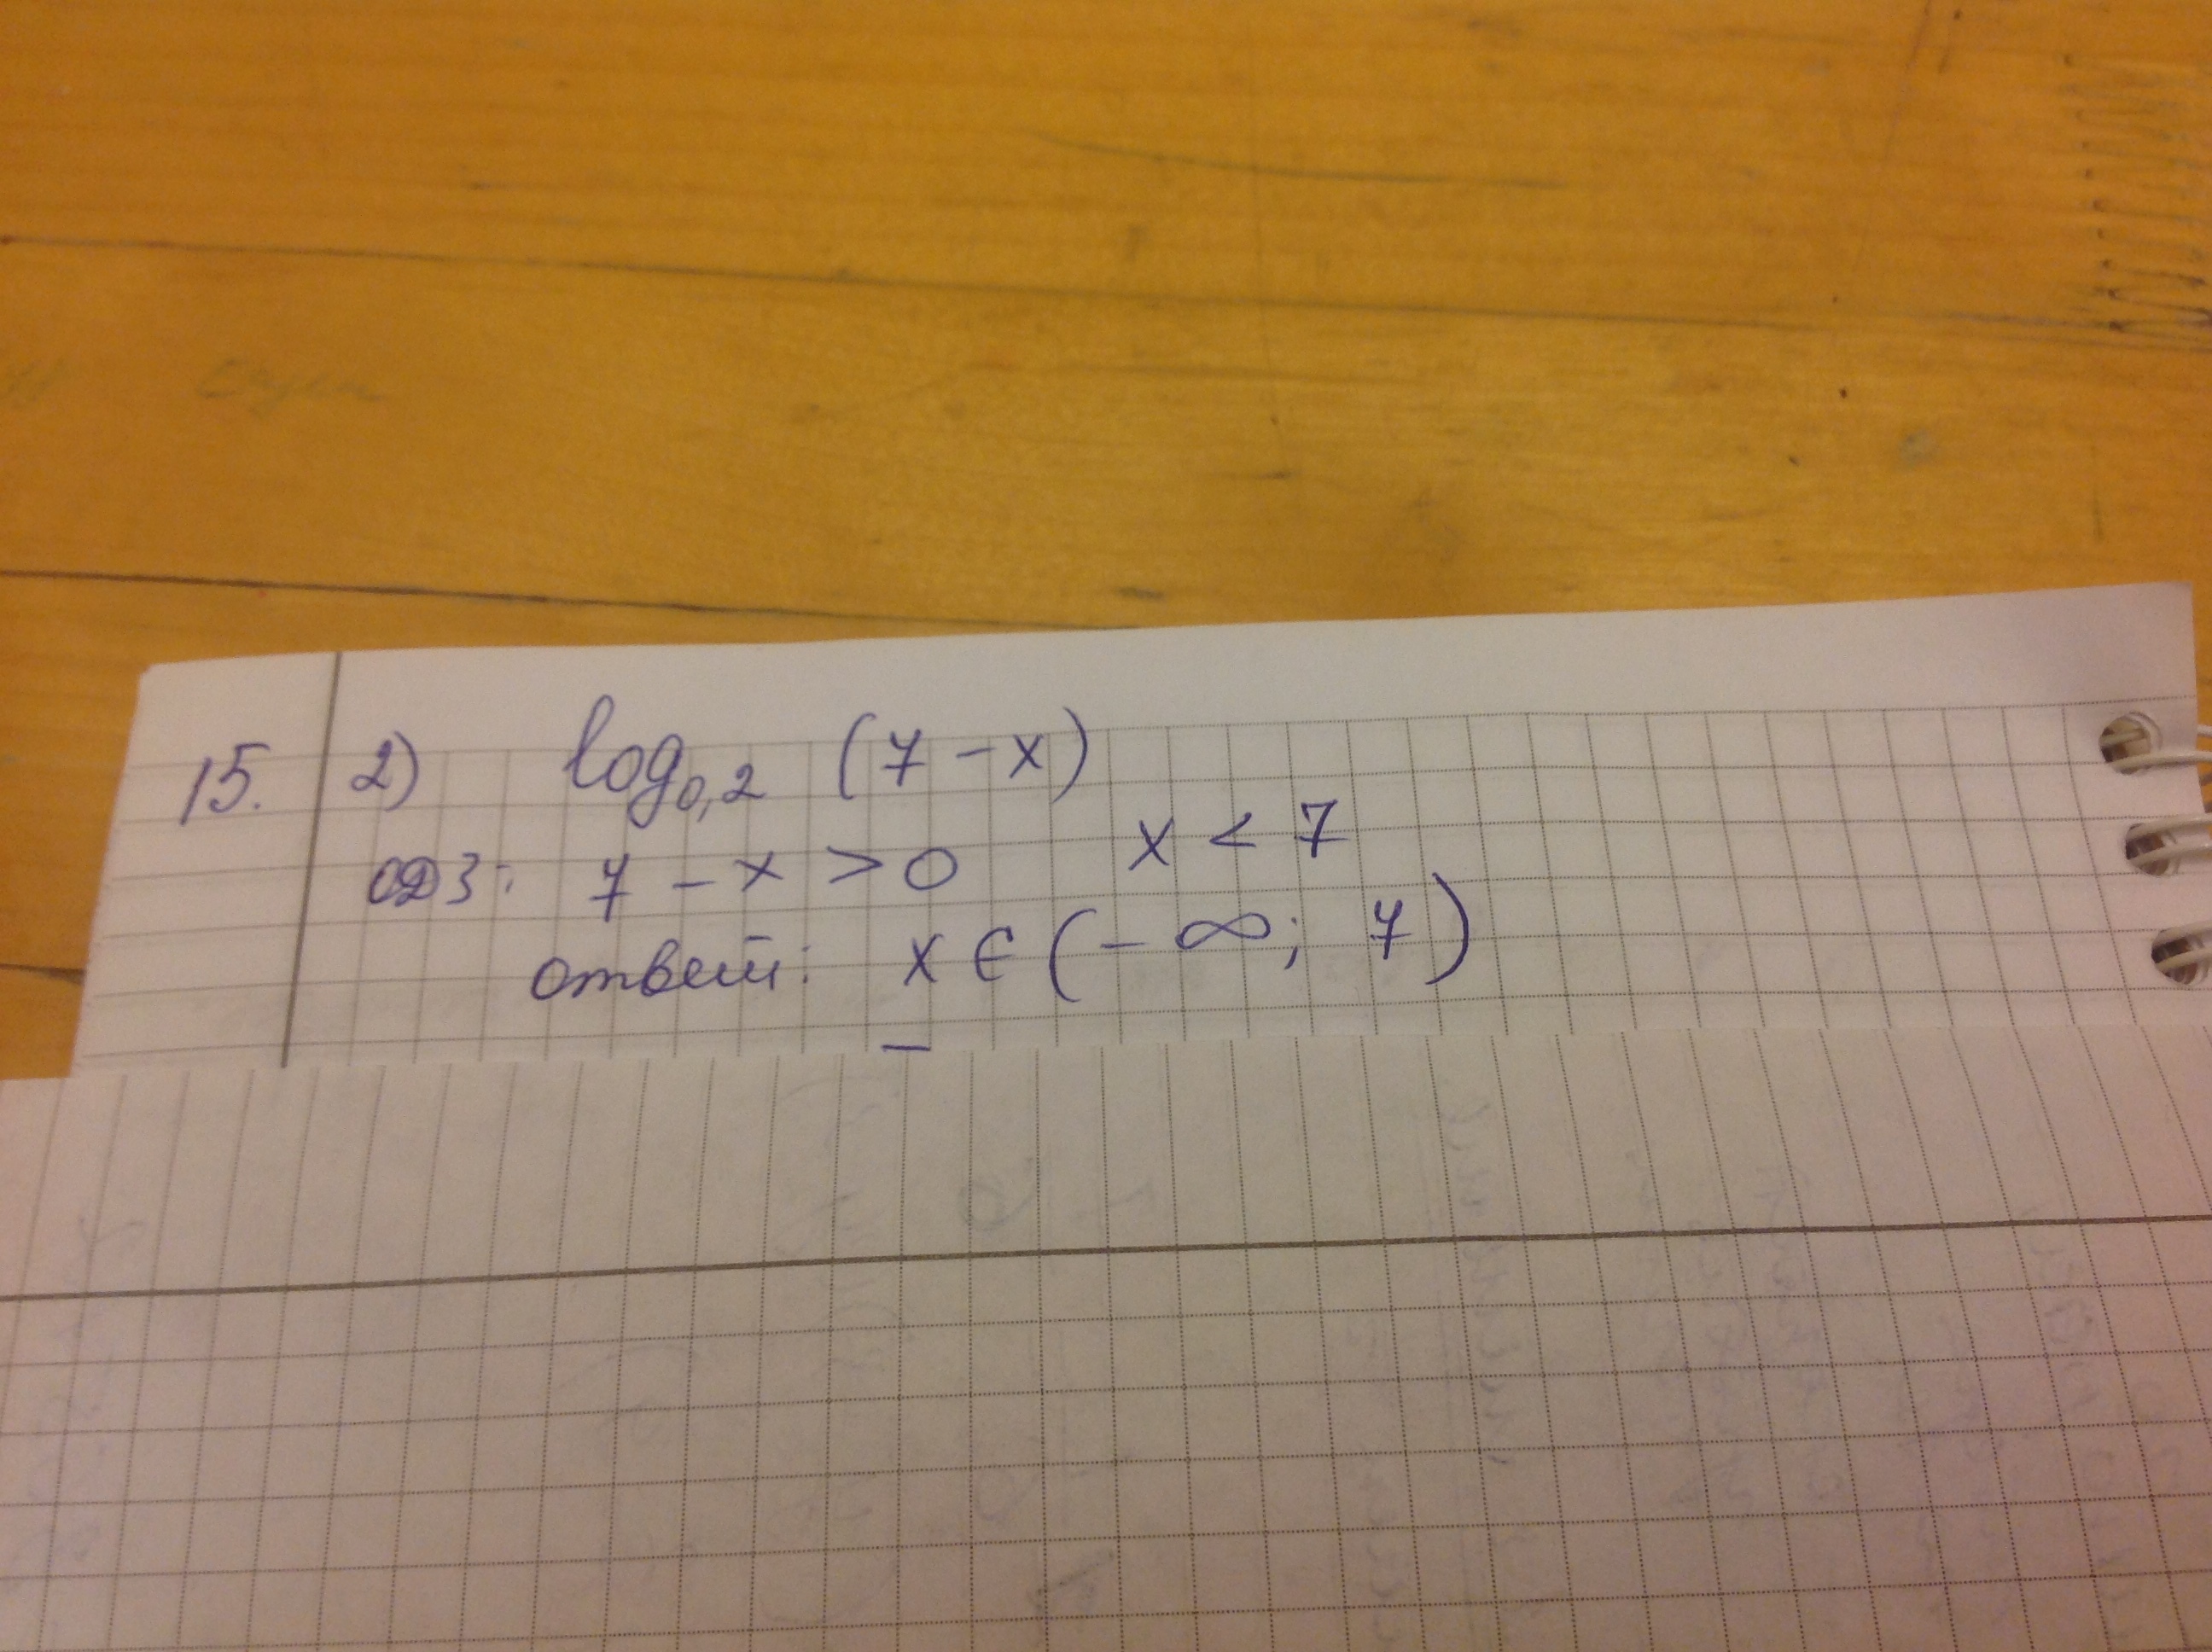 15. 2) log₀,₂ (7 - x)
ОДЗ: 7 - x > 0 x < 7
ответ: x ∈ (- ∞; 7)